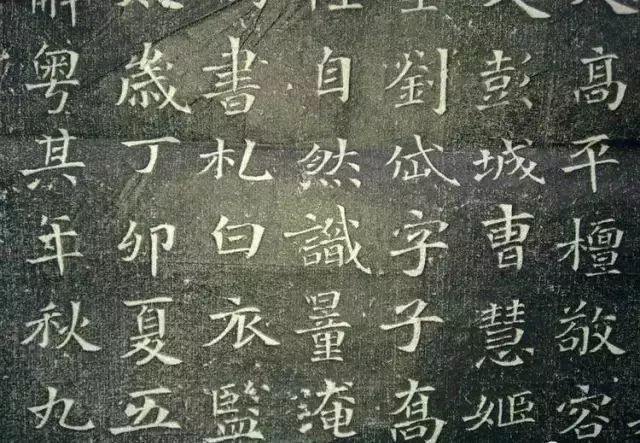 高平檀敬容
彭城曹慧姬
劉岱字子喬
自然識量淹
書札白衣監
歲丁卯夏五
粤其年秋九